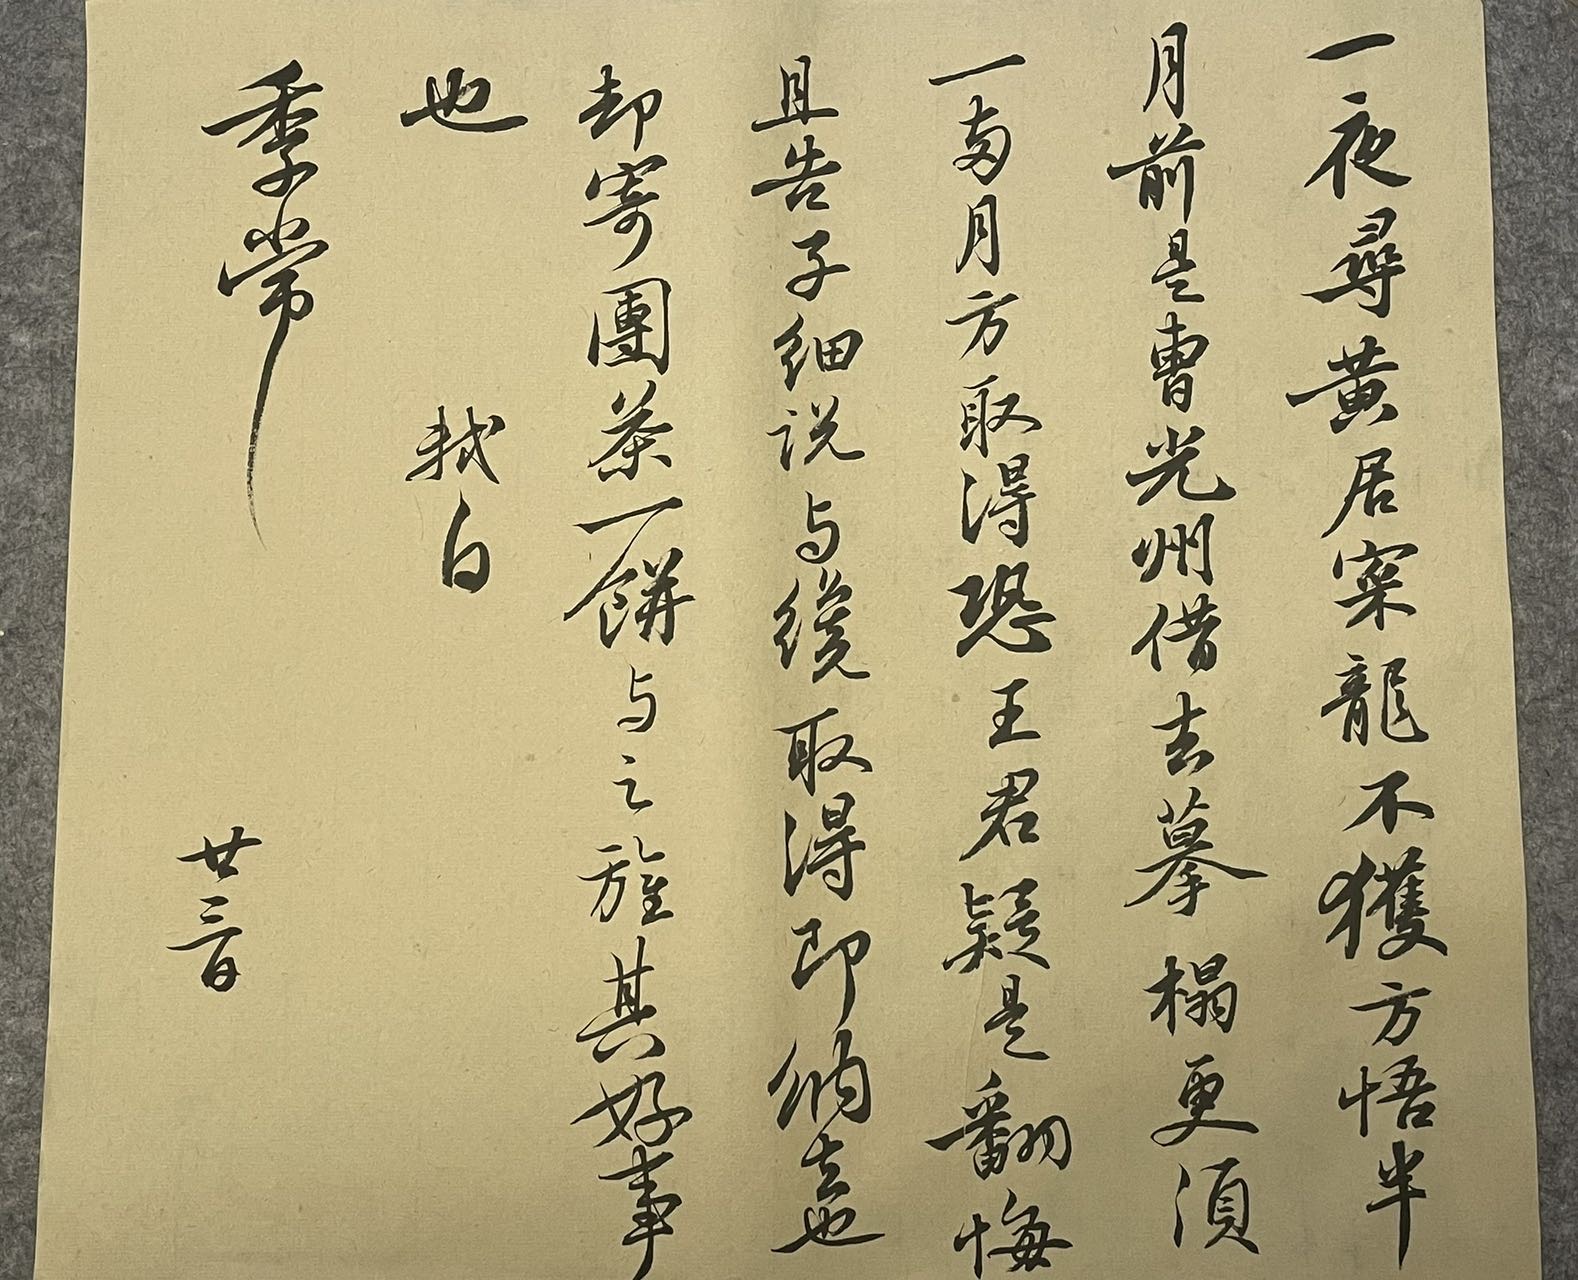 一夜尋黄居寀龍不獲方悟半
月前是曹光州借去摹榻更須
一兩月方取得恐王君疑是翻悔
且告子細説与纔取得即納去也
却寄團茶一餅与之旌其好事
也 軾白
季常 廿三日